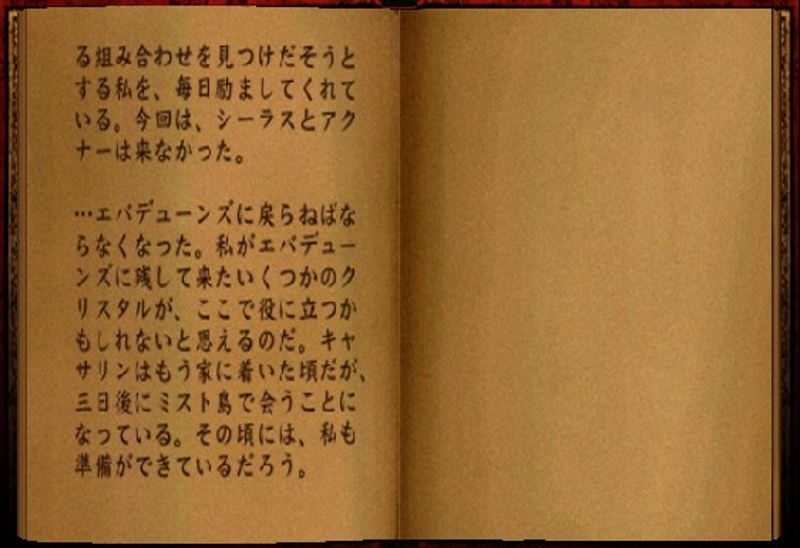 る組み合わせを見つけだそうと
する私を、毎日励ましてくれて
いる。今回は、シーラスとアク
ナーは来なかった。
…エバデューンズに戻らねばな
らなくなった。私がエバデュー
ンズに残して来たいくつかのク
リスタルが、ここで役に立つか
もしれないと思えるのだ。キャ
サリンはもう家に着いた頃だが、
三日後にミスト島で会うことに
なっている。その頃には、私も
準備ができているだろう。